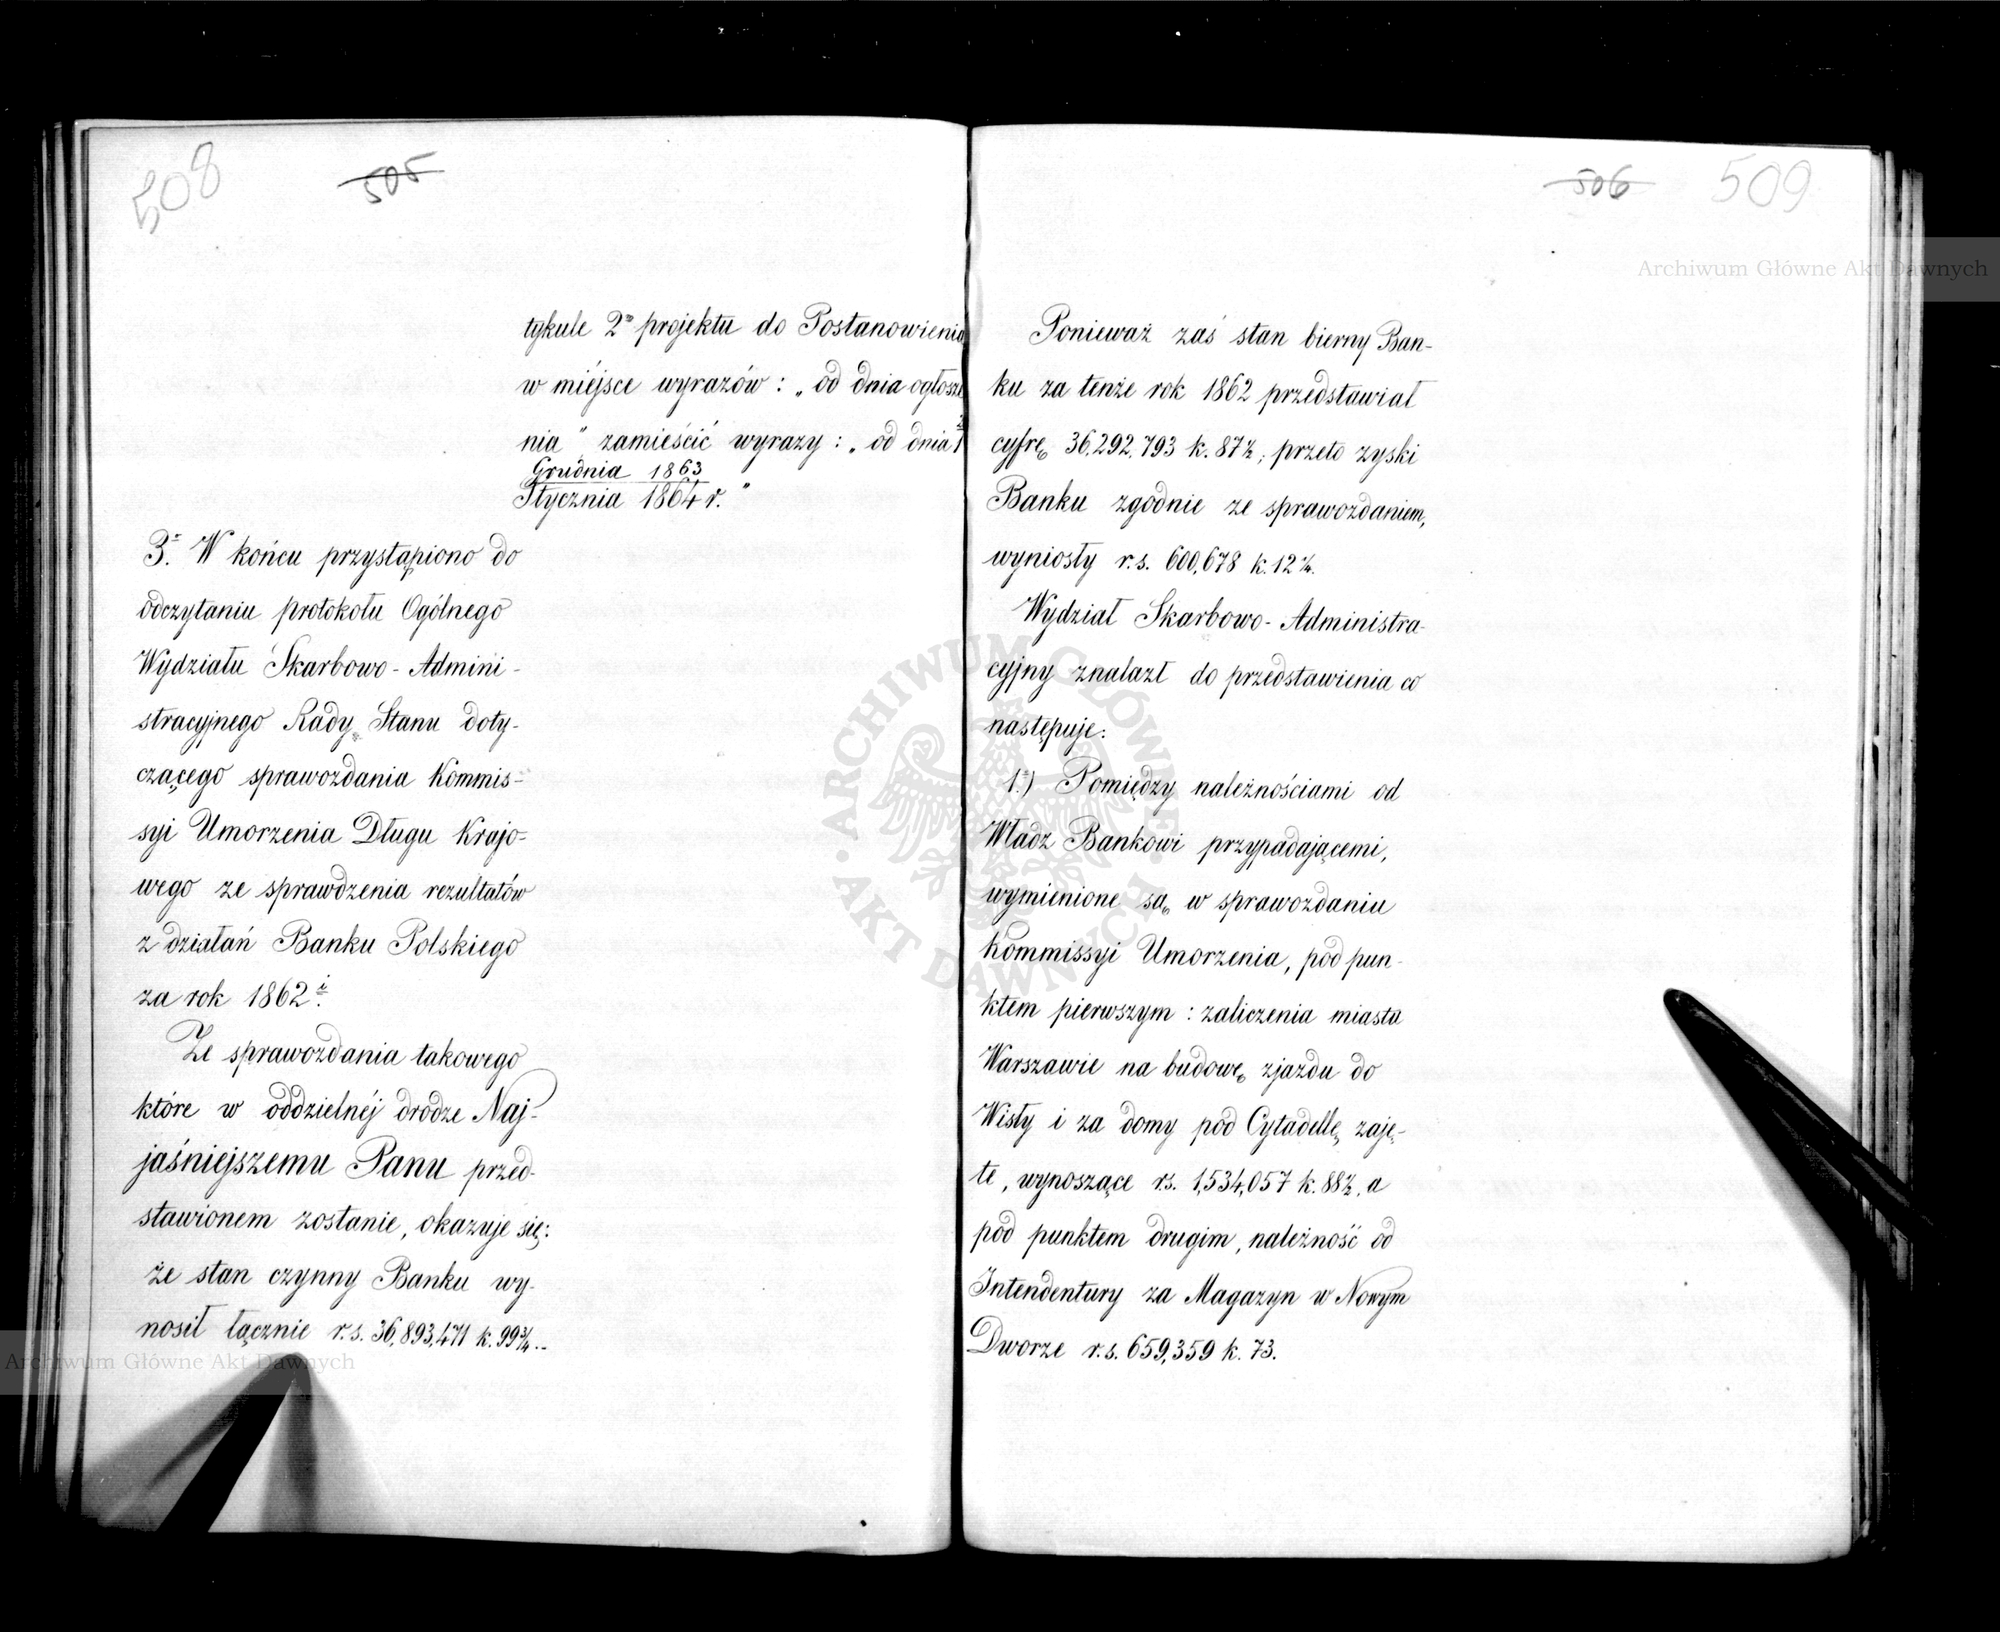 508
505
tykule 2m projektu do Postanowienia
w miéjsce wyrazów: „od dnia ogłosze
nia" zamieścić wyrazy: „od dnia
Grudnia 1863
Stycznia 1864 r."
3. W końcu przystąpiono do
odczytaniu protokołu Ogólnego
Wydziału Skarbowo-Admini-
stracyjnego Rady Stanu doty-
czącego sprawozdania Kommis-
syi Umorzenia Długu Krajo-
wego ze sprawdzenia rezultatów
z działań Banku Polskiego
za rok 1862
Ze sprawozdania takowego
które w oddzielnéj drodze Naj-
jaśniejszemu Panu przed-
stawionem zostanie, okazuje się:
że stan czynny Banku wy-
nosił łącznie r.s. 36,893,471 k. 99¾.
506
509
Ponieważ zaś stan bierny Ban-
ku za tenże rok 1862 przedstawiał
cyfrę 36,292,793 k. 87½; przeto zyski
Banku zgodnie ze sprawozdaniem,
wyniosły r.s. 600,678 k. 12¼.
Wydział Skarbowo-Administra-
cyjny znalazł do przedstawienia co
następuje:
1.) Pomiędzy należnościami od
Władz Bankowi przypadającemi,
wymienione są w sprawozdaniu
Kommissyi Umorzenia, pod pun-
ktem pierwszym: zaliczenia miasta
Warszawie na budowę zjazdu do
Wisły i za domy pod Cytadellę zaję-
te, wynoszące rs. 1,534,057 k. 88½, a
pod punktem drugim, należność od
Intendentury za Magazyn w Nowym
Dworze r.s. 659,359 k. 73.
Archiwum Główne Akt Dawnych
ARCHIWUM GŁÓWNE · AKT DAWNYCH ·
Archiwum Główne Akt Dawnych